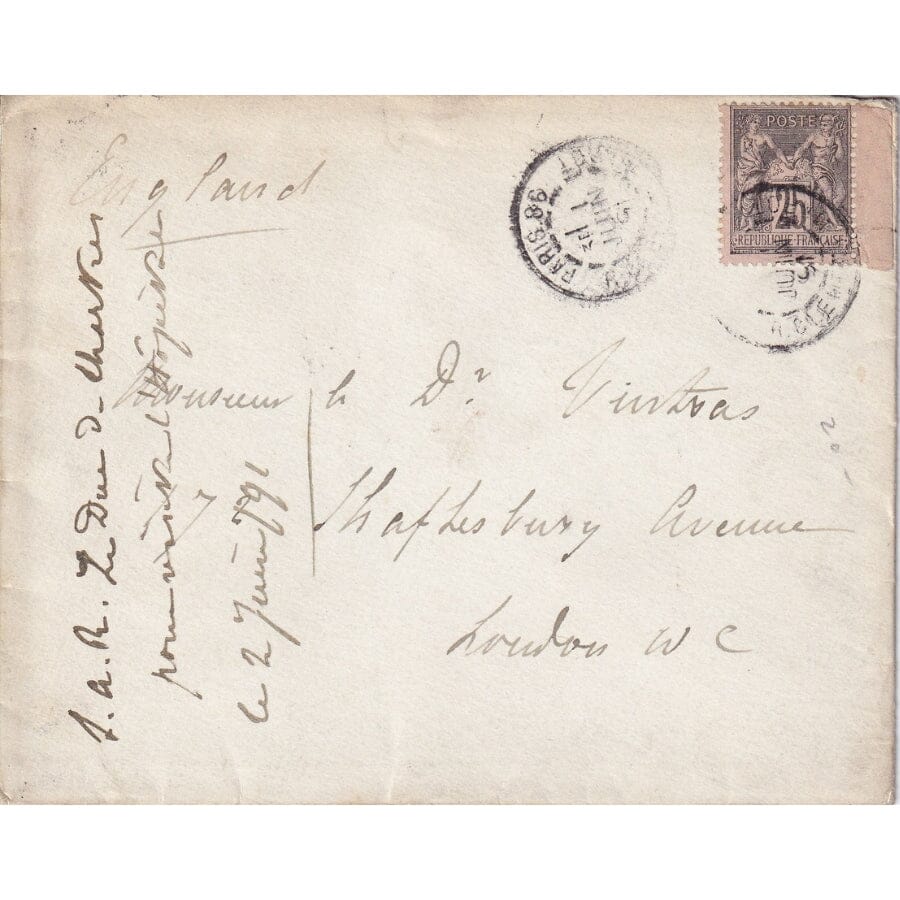 England
Monsieur le Dr Vintras
Shaftesbury Avenue
London W C
S. A. R. Le Duc de Chartres
pour visiter l'hôpital
le 2 Juin/91
POSTE
25
REPUBLIQUE FRANÇAISE
PARIS.86
JUIN
JUIN